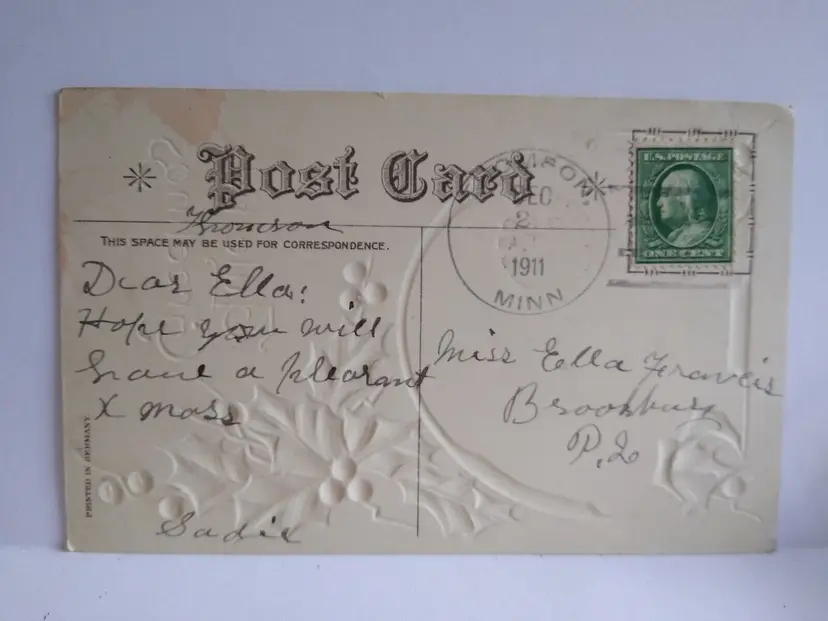 Post Card
U.S. POSTAGE
ONE CENT
DEC
2
1911
MINN
Thomson
THIS SPACE MAY BE USED FOR CORRESPONDENCE.
Dear Ella:
Hope you will
have a pleasant
X mass
Sadie
Miss Ella Francis
PRINTED IN GERMANY